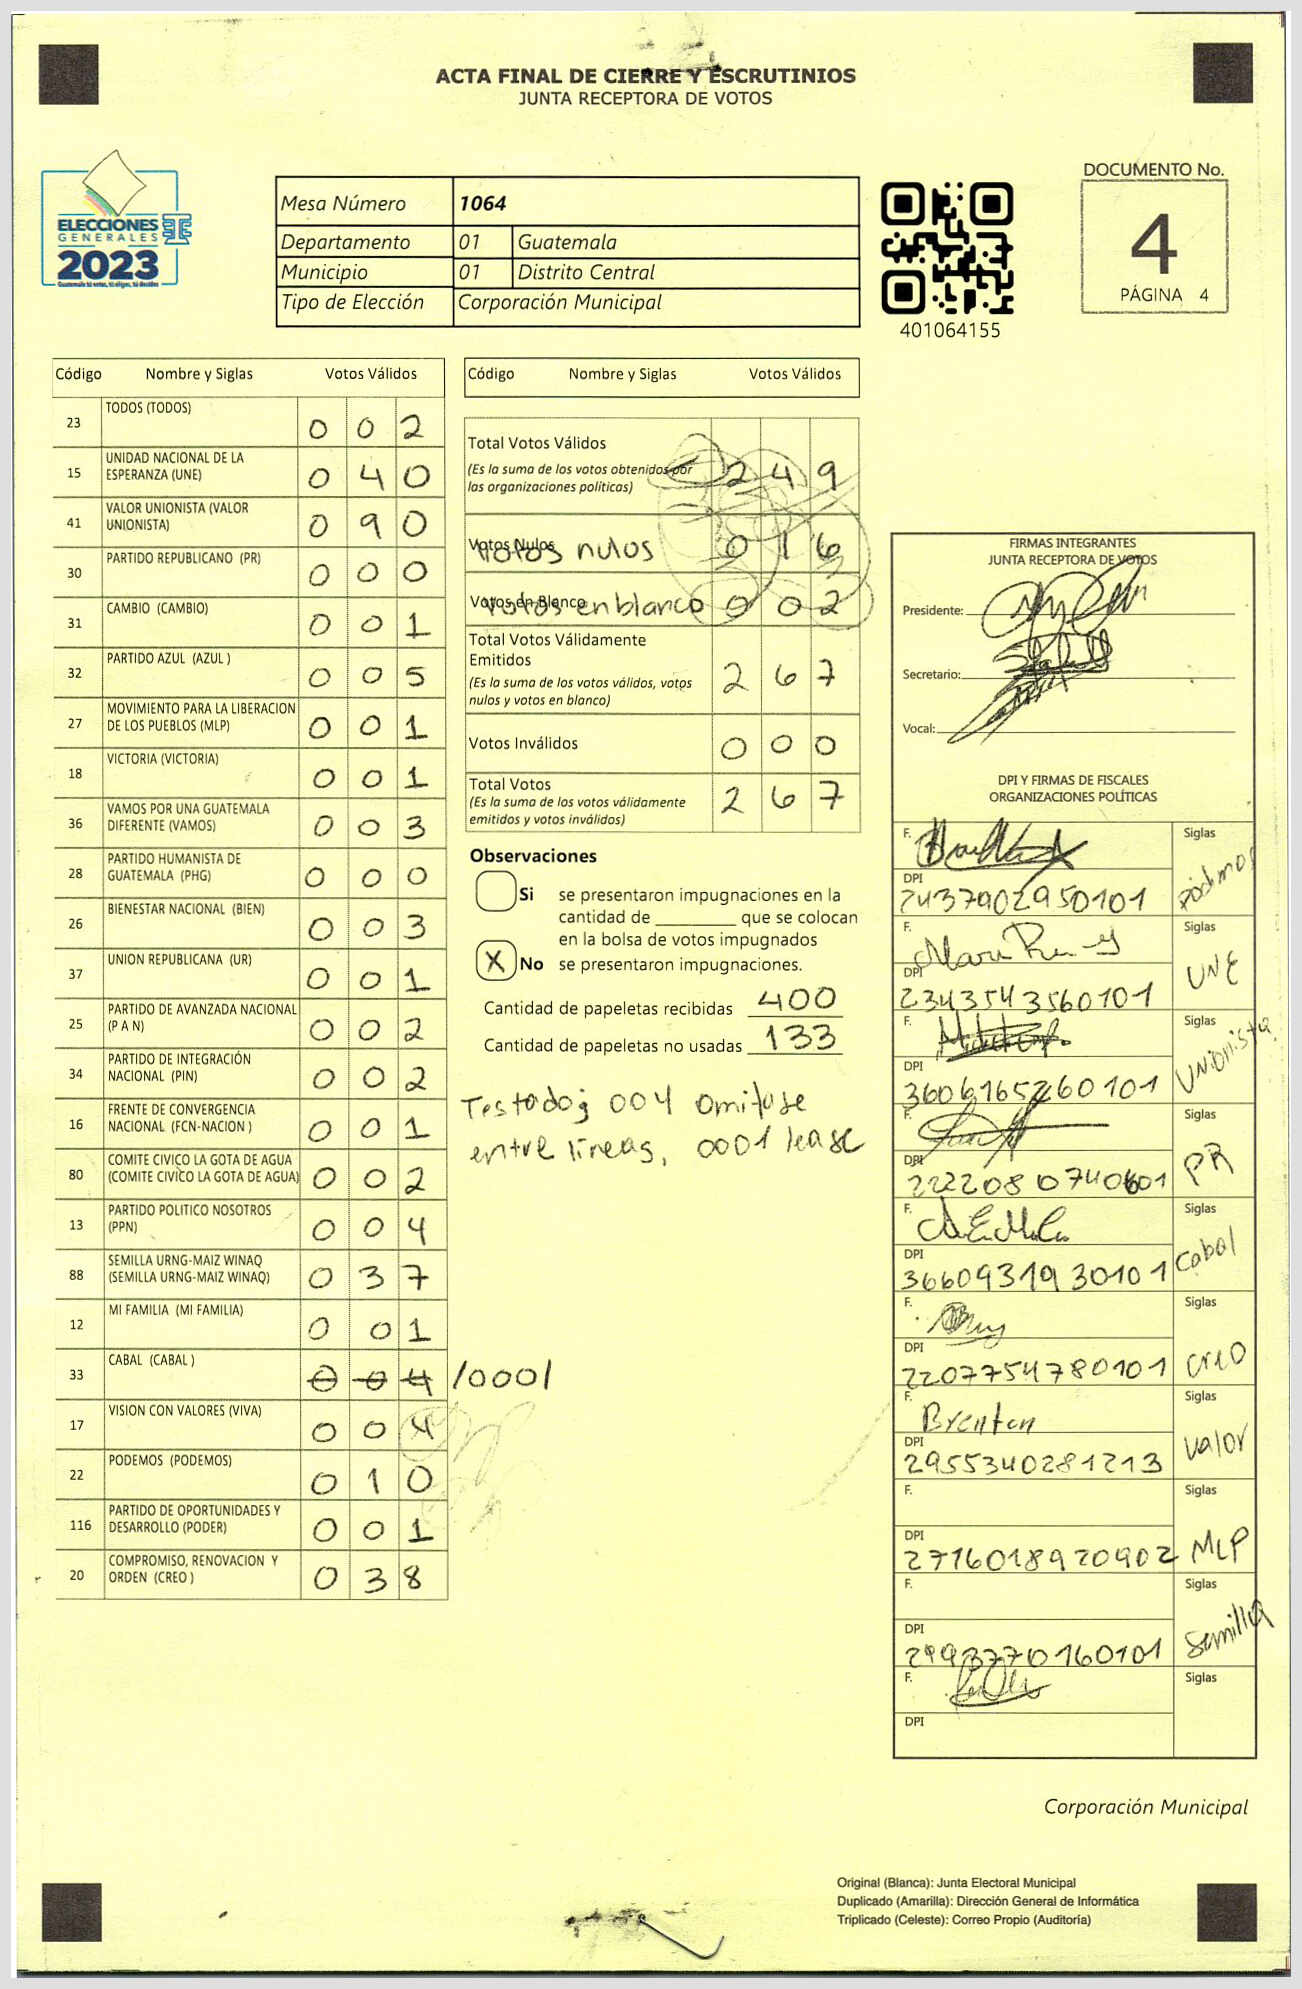 ACTA FINAL DE CIERRE Y ESCRUTINIOS
JUNTA RECEPTORA DE VOTOS
ELECCIONES
GENERALES
2023
Guatemala tú votas, tú eliges, tú decides
Mesa Número 1064
Departamento 01 Guatemala
Municipio 01 Distrito Central
Tipo de Elección Corporación Municipal
401064155
DOCUMENTO No.
4
PÁGINA 4
Código Nombre y Siglas Votos Válidos
23 TODOS (TODOS) 0 0 2
15 UNIDAD NACIONAL DE LA ESPERANZA (UNE) 0 4 0
41 VALOR UNIONISTA (VALOR UNIONISTA) 0 9 0
30 PARTIDO REPUBLICANO (PR) 0 0 0
31 CAMBIO (CAMBIO) 0 0 1
32 PARTIDO AZUL (AZUL ) 0 0 5
27 MOVIMIENTO PARA LA LIBERACION DE LOS PUEBLOS (MLP) 0 0 1
18 VICTORIA (VICTORIA) 0 0 1
36 VAMOS POR UNA GUATEMALA DIFERENTE (VAMOS) 0 0 3
28 PARTIDO HUMANISTA DE GUATEMALA (PHG) 0 0 0
26 BIENESTAR NACIONAL (BIEN) 0 0 3
37 UNION REPUBLICANA (UR) 0 0 1
25 PARTIDO DE AVANZADA NACIONAL (P A N) 0 0 2
34 PARTIDO DE INTEGRACIÓN NACIONAL (PIN) 0 0 2
16 FRENTE DE CONVERGENCIA NACIONAL (FCN-NACION ) 0 0 1
80 COMITE CIVICO LA GOTA DE AGUA (COMITE CIVICO LA GOTA DE AGUA) 0 0 2
13 PARTIDO POLITICO NOSOTROS (PPN) 0 0 4
88 SEMILLA URNG-MAIZ WINAQ (SEMILLA URNG-MAIZ WINAQ) 0 3 7
12 MI FAMILIA (MI FAMILIA) 0 0 1
33 CABAL (CABAL ) 0 0 4 /0001
17 VISION CON VALORES (VIVA) 0 0 4
22 PODEMOS (PODEMOS) 0 1 0
116 PARTIDO DE OPORTUNIDADES Y DESARROLLO (PODER) 0 0 1
20 COMPROMISO, RENOVACION Y ORDEN (CREO ) 0 3 8
Código Nombre y Siglas Votos Válidos
Total Votos Válidos 2 4 9
(Es la suma de los votos obtenidos por
las organizaciones políticas)
Votos Nulos votos nulos 0 1 6
Votos en Blanco votos en blanco 0 0 2
Total Votos Válidamente
Emitidos 2 6 7
(Es la suma de los votos válidos, votos
nulos y votos en blanco)
Votos Inválidos 0 0 0
Total Votos 2 6 7
(Es la suma de los votos válidamente
emitidos y votos inválidos)
Observaciones
Si se presentaron impugnaciones en la
cantidad de ________ que se colocan
en la bolsa de votos impugnados
X No se presentaron impugnaciones.
Cantidad de papeletas recibidas 400
Cantidad de papeletas no usadas 133
Testados 004 omitase
entre lineas, 0001 lease
FIRMAS INTEGRANTES
JUNTA RECEPTORA DE VOTOS
Presidente:
Secretario:
Vocal:
DPI Y FIRMAS DE FISCALES
ORGANIZACIONES POLÍTICAS
F. Siglas
DPI 2437902950101 pódimos
F. Siglas
DPI 2343543560101 UNE
F. Siglas
DPI 3606165260101 Unionista
F. Siglas
DPI PR
F. Siglas
DPI 3660931930101 Cabal
F. Siglas
DPI 2207754780101 creo
F. Brenton Siglas
DPI 2955340281213 valor
F. Siglas
DPI 2716018920902 MLP
F. Siglas
DPI 2993770160101 Semilla
F. Siglas
DPI
Corporación Municipal
Original (Blanca): Junta Electoral Municipal
Duplicado (Amarilla): Dirección General de Informática
Triplicado (Celeste): Correo Propio (Auditoría)